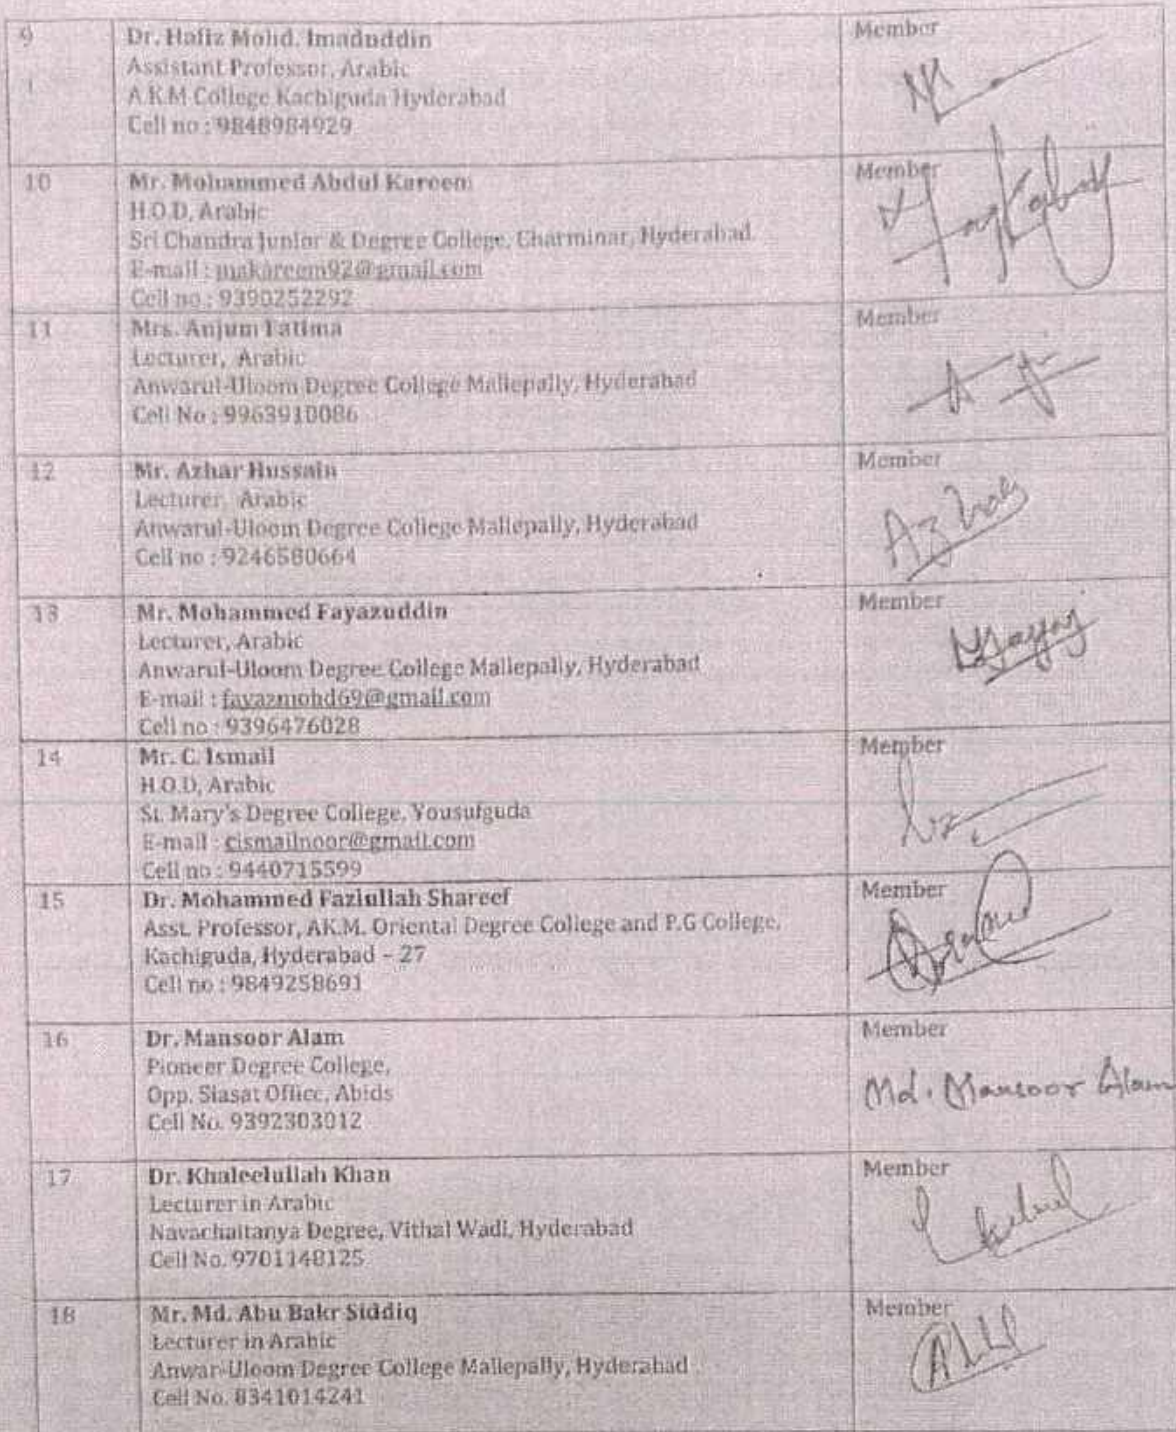 9
Dr. Hafiz Mohd. Imaduddin
Member
Assistant Professor, Arabic
A.K.M College Kachiguda Hyderabad
Cell no : 9848984929
10
Mr. Mohammed Abdul Kareem
Member
H.O.D, Arabic
Sri Chandra Junior & Degree College, Charminar, Hyderabad.
E-mail : makareem92@gmail.com
Cell no : 9390252292
11
Mrs. Anjum Fatima
Member
Lecturer, Arabic
Anwarul-Uloom Degree College Mallepally, Hyderabad
Cell No : 9963910086
12
Mr. Azhar Hussain
Member
Lecturer, Arabic
Anwarul-Uloom Degree College Mallepally, Hyderabad
Azhar
Cell no : 9246580664
13
Mr. Mohammed Fayazuddin
Member
Lecturer, Arabic
Anwarul-Uloom Degree College Mallepally, Hyderabad
E-mail : fayazmohd69@gmail.com
Cell no : 9396476028
14
Mr. C. Ismail
Member
H.O.D, Arabic
St. Mary's Degree College, Yousufguda
E-mail : cismailnoor@gmail.com
Cell no : 9440715599
15
Dr. Mohammed Fazlullah Shareef
Member
Asst. Professor, AK.M. Oriental Degree College and P.G College,
Kachiguda, Hyderabad – 27
Cell no : 9849258691
16
Dr. Mansoor Alam
Member
Pioneer Degree College,
Opp. Siasat Office, Abids
Md. Mansoor Alam
Cell No. 9392303012
17
Dr. Khaleelullah Khan
Member
Lecturer in Arabic
Navachaitanya Degree, Vithal Wadi, Hyderabad
Cell No. 9701148125
18
Mr. Md. Abu Bakr Siddiq
Member
Lecturer in Arabic
Anwar-Uloom Degree College Mallepally, Hyderabad
Cell No. 8341014241